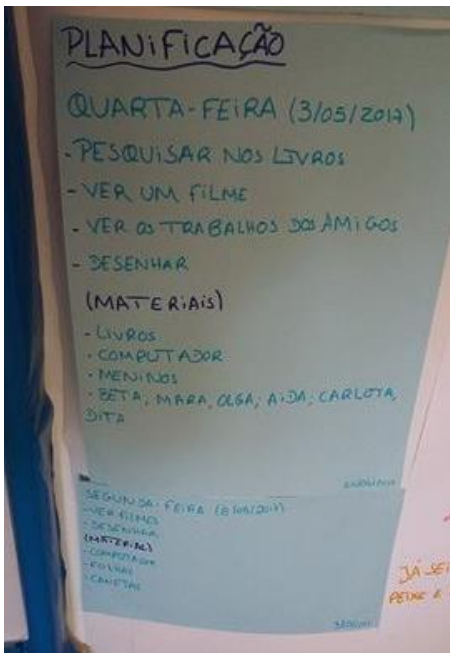 PLANIFICAÇÃO
QUARTA-FEIRA (3/05/2017)
- PESQUISAR NOS LIVROS
- VER UM FILME
- VER OS TRABALHOS DOS AMIGOS
- DESENHAR
(MATERIAIS)
- LIVROS
- COMPUTADOR
- MENINOS
- BETA, MARA, OLGA; AIDA; CARLOTA,
DITA
SEGUNDA-FEIRA (8/05/2017)
- VER FILMES
- DESENHAR
(MATERIAL)
- COMPUTADOR
- FOLHAS
- CANETAS
JÁ SEI
PEIXE E